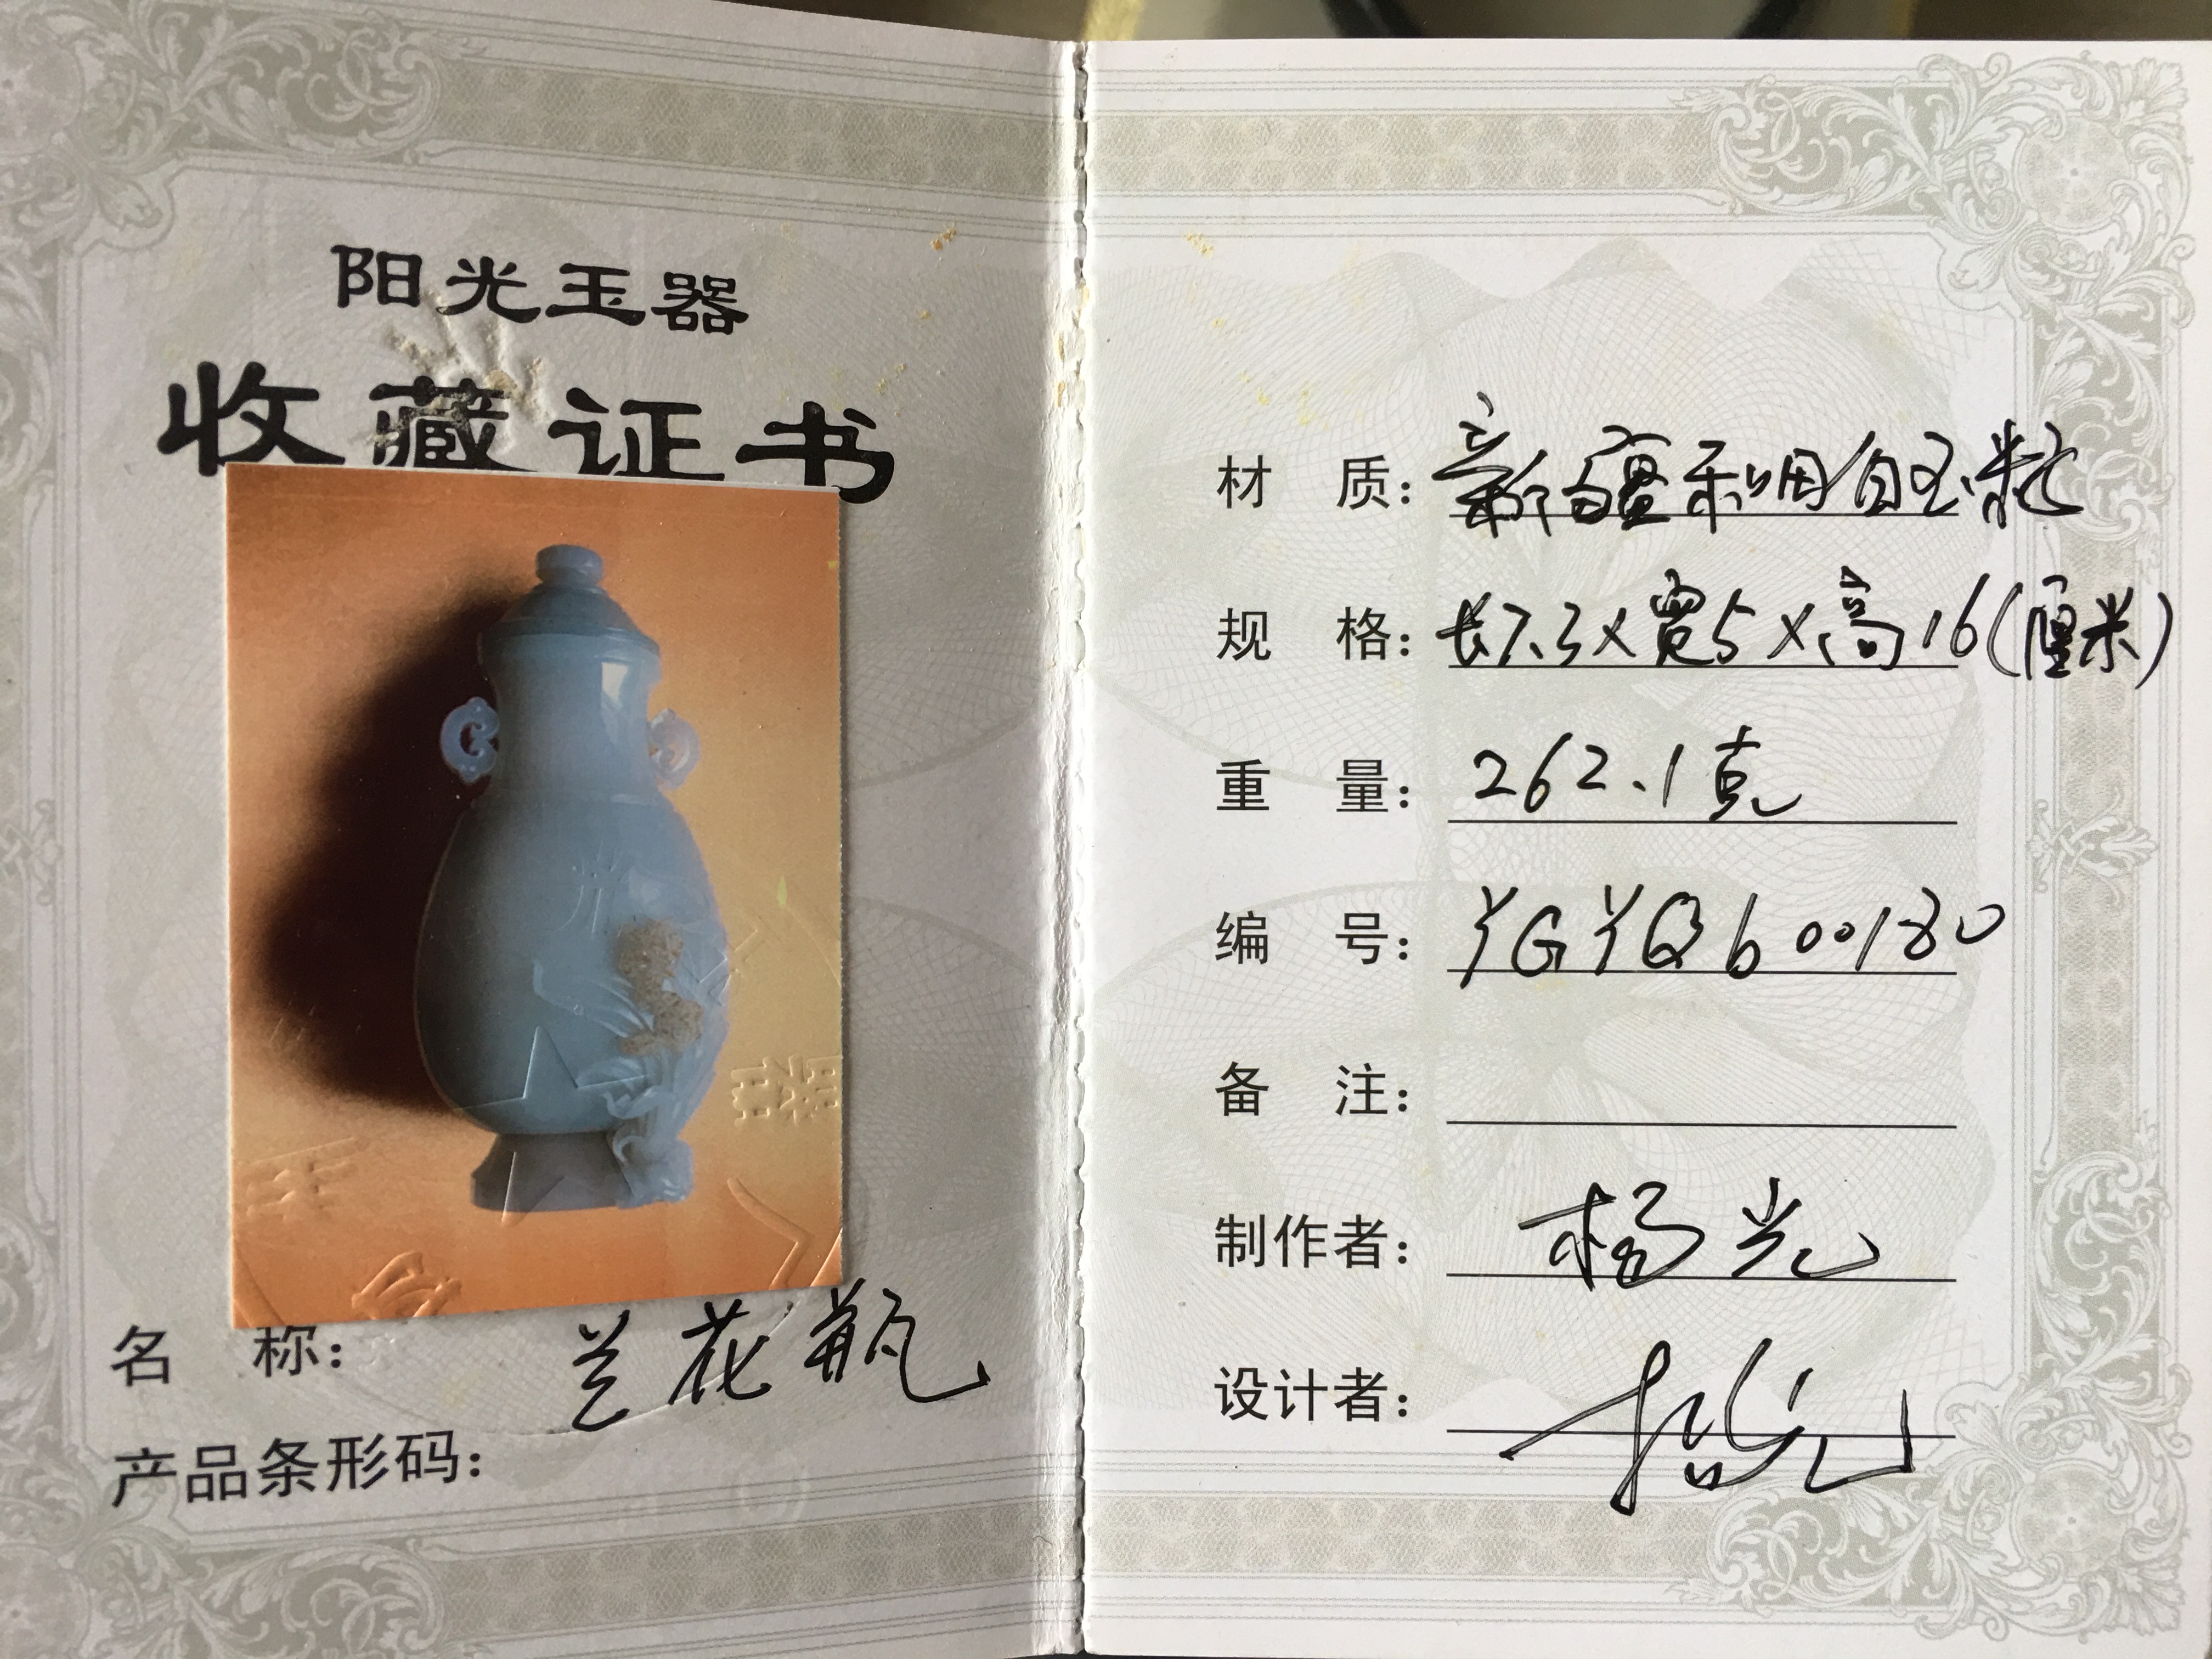 阳光玉器
收藏证书
名 称: 兰花瓶
产品条形码:
材 质: 新疆和田白玉籽
规 格: 长7.3×宽5×高16(厘米)
重 量: 262.1克
编 号: YGYQ600180
备 注:
制作者: 杨光
设计者: 杨光